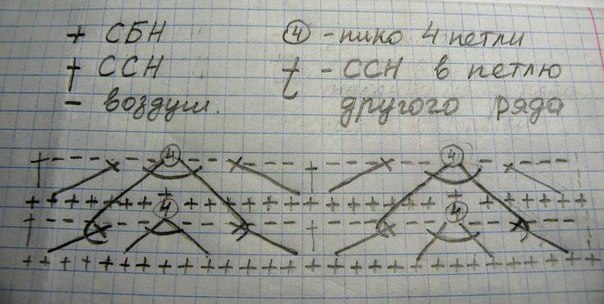 + СБН ④ - пико 4 петли
† ССН † - ССН в петлю
- воздуш. другого ряда
4 4
4 4